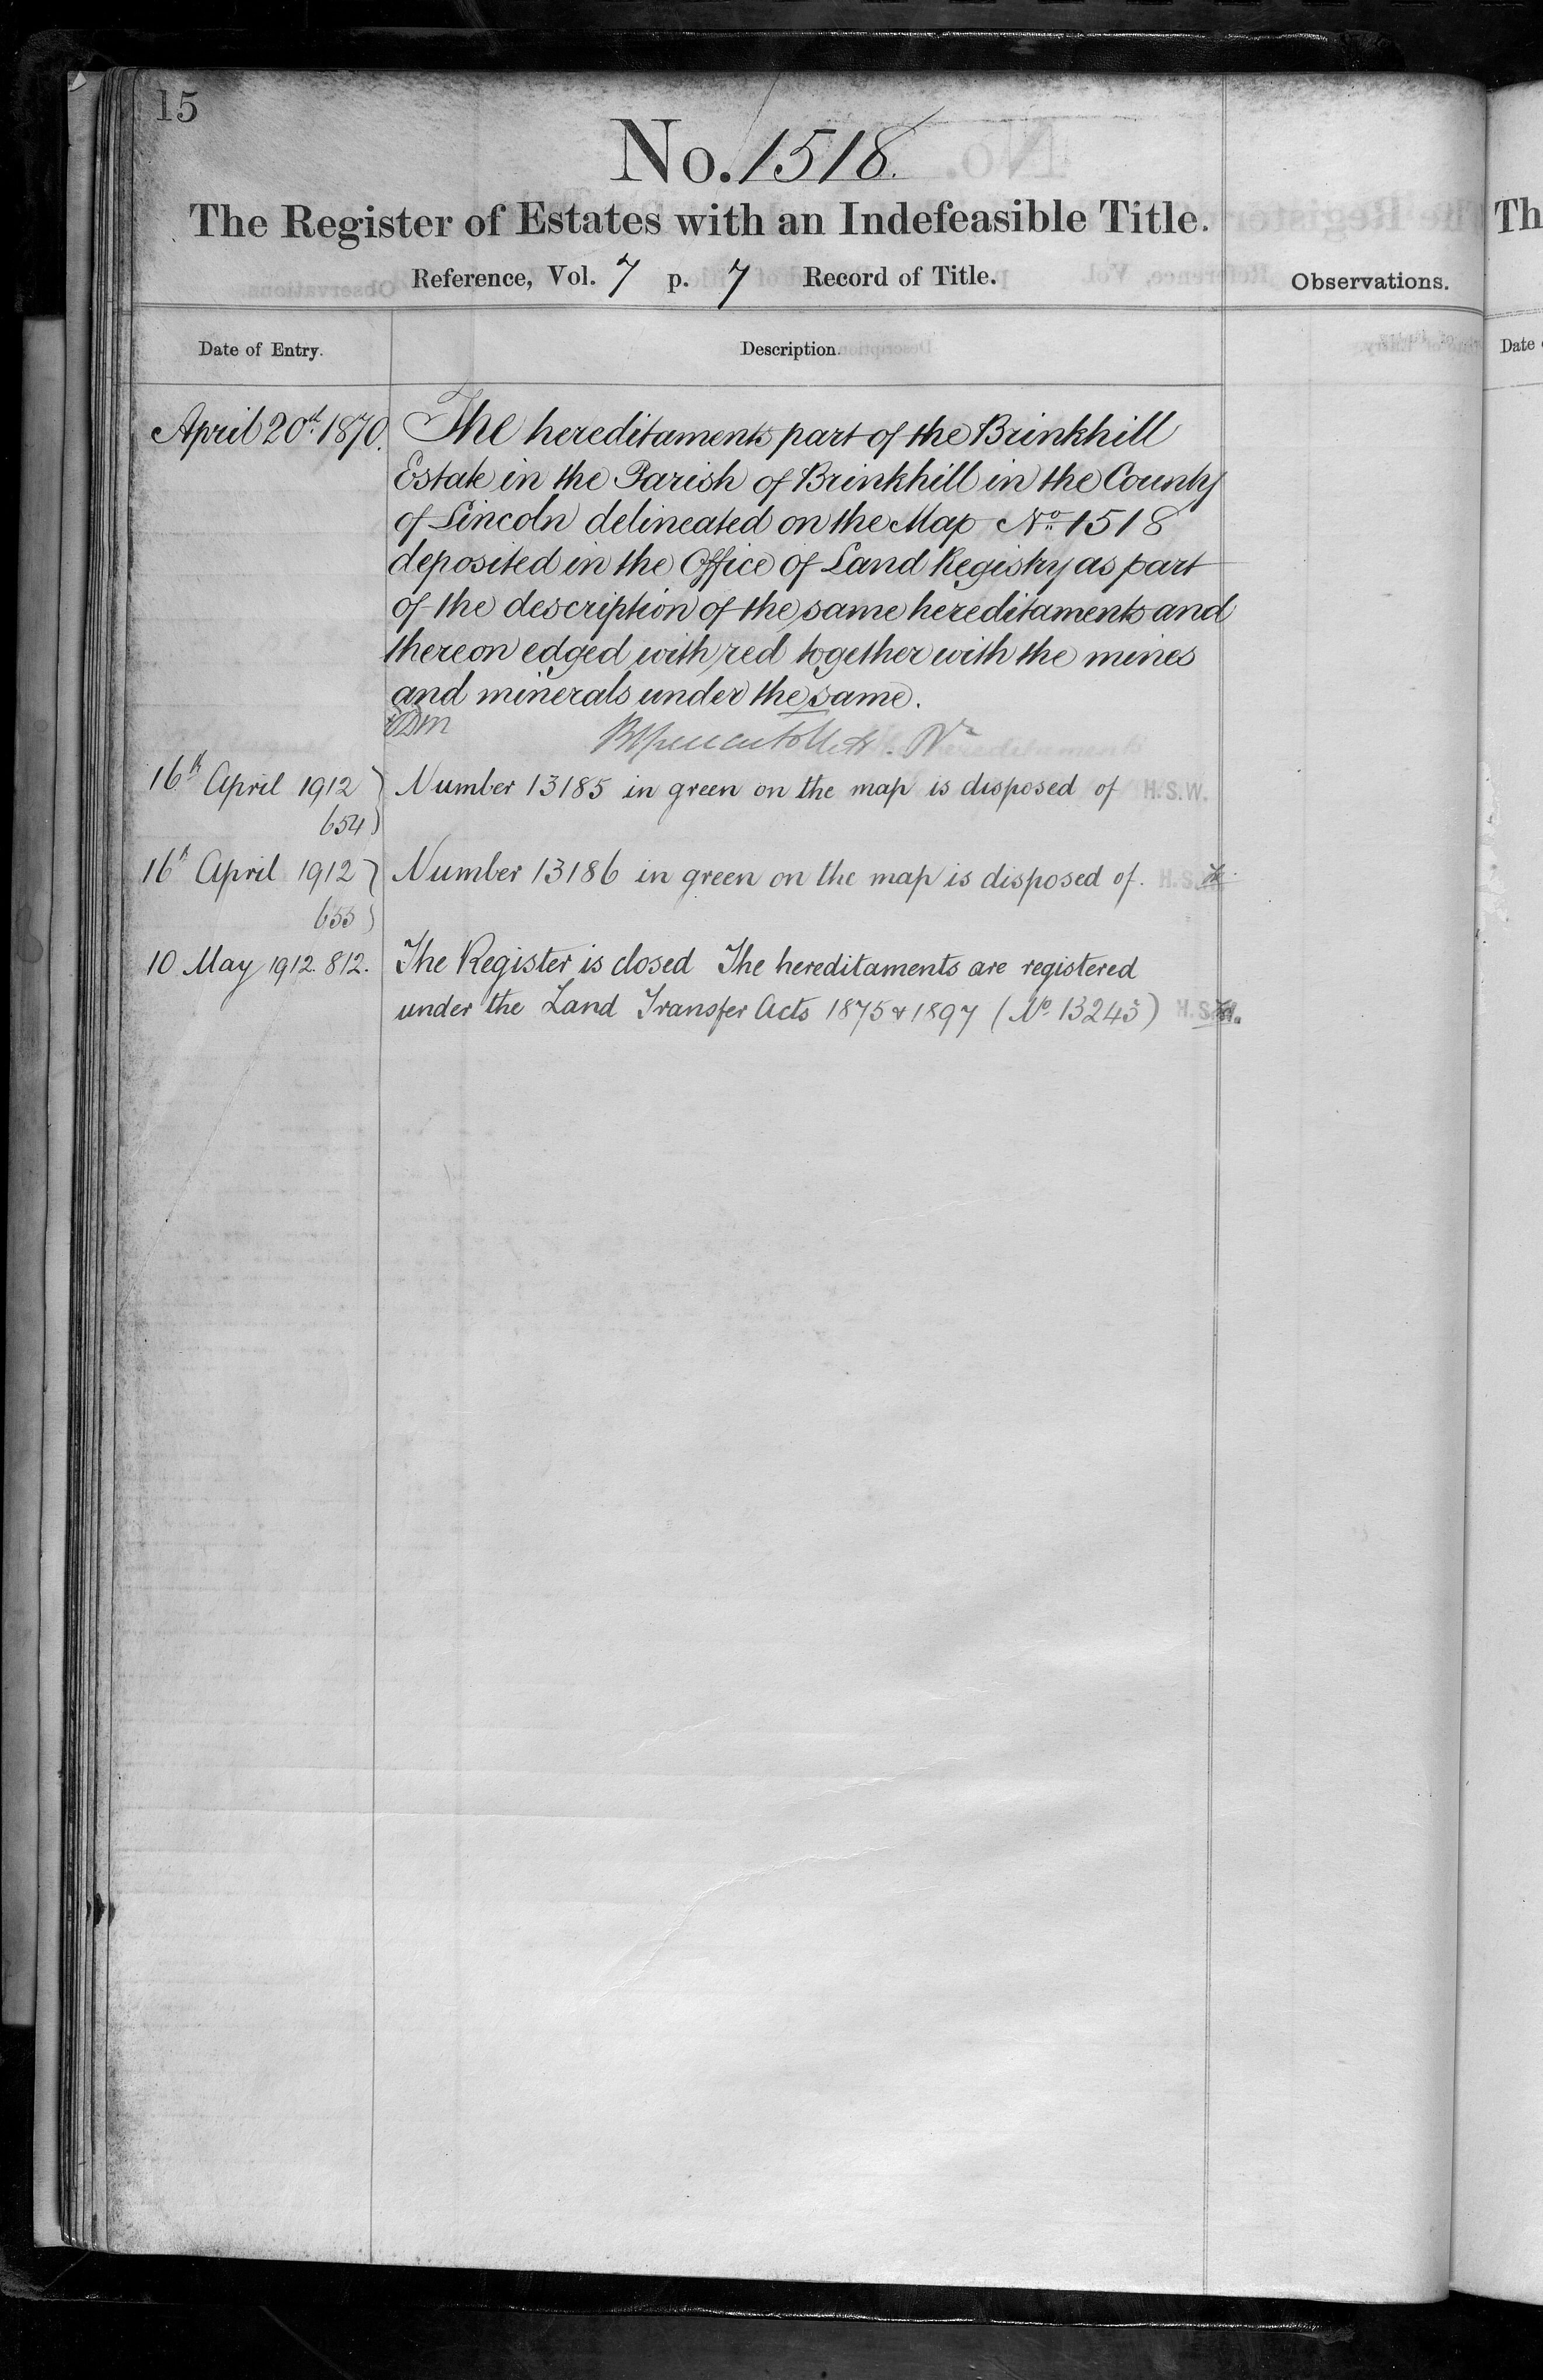 15
No. 1518.
The Register of Estates with an Indefeasible Title.
Reference, Vol. 7 p. 7 Record of Title.
Observations.
Date of Entry.
Description.
April 20th 1870.
The hereditaments part of the Brinkhill
Estate in the Parish of Brinkhill in the County
of Lincoln delineated on the Map No. 1518
deposited in the Office of Land Registry as part
of the description of the same hereditaments and
thereon edged with red together with the mines
and minerals under the same.
16th April 1912
654
Number 13185 in green on the map is disposed of H.S.W.
16th April 1912
655
Number 13186 in green on the map is disposed of. H.S.
10 May 1912. 812.
The Register is closed The hereditaments are registered
under the Land Transfer Acts 1875 & 1897 (No. 13243) H.S.W.
Th
Date